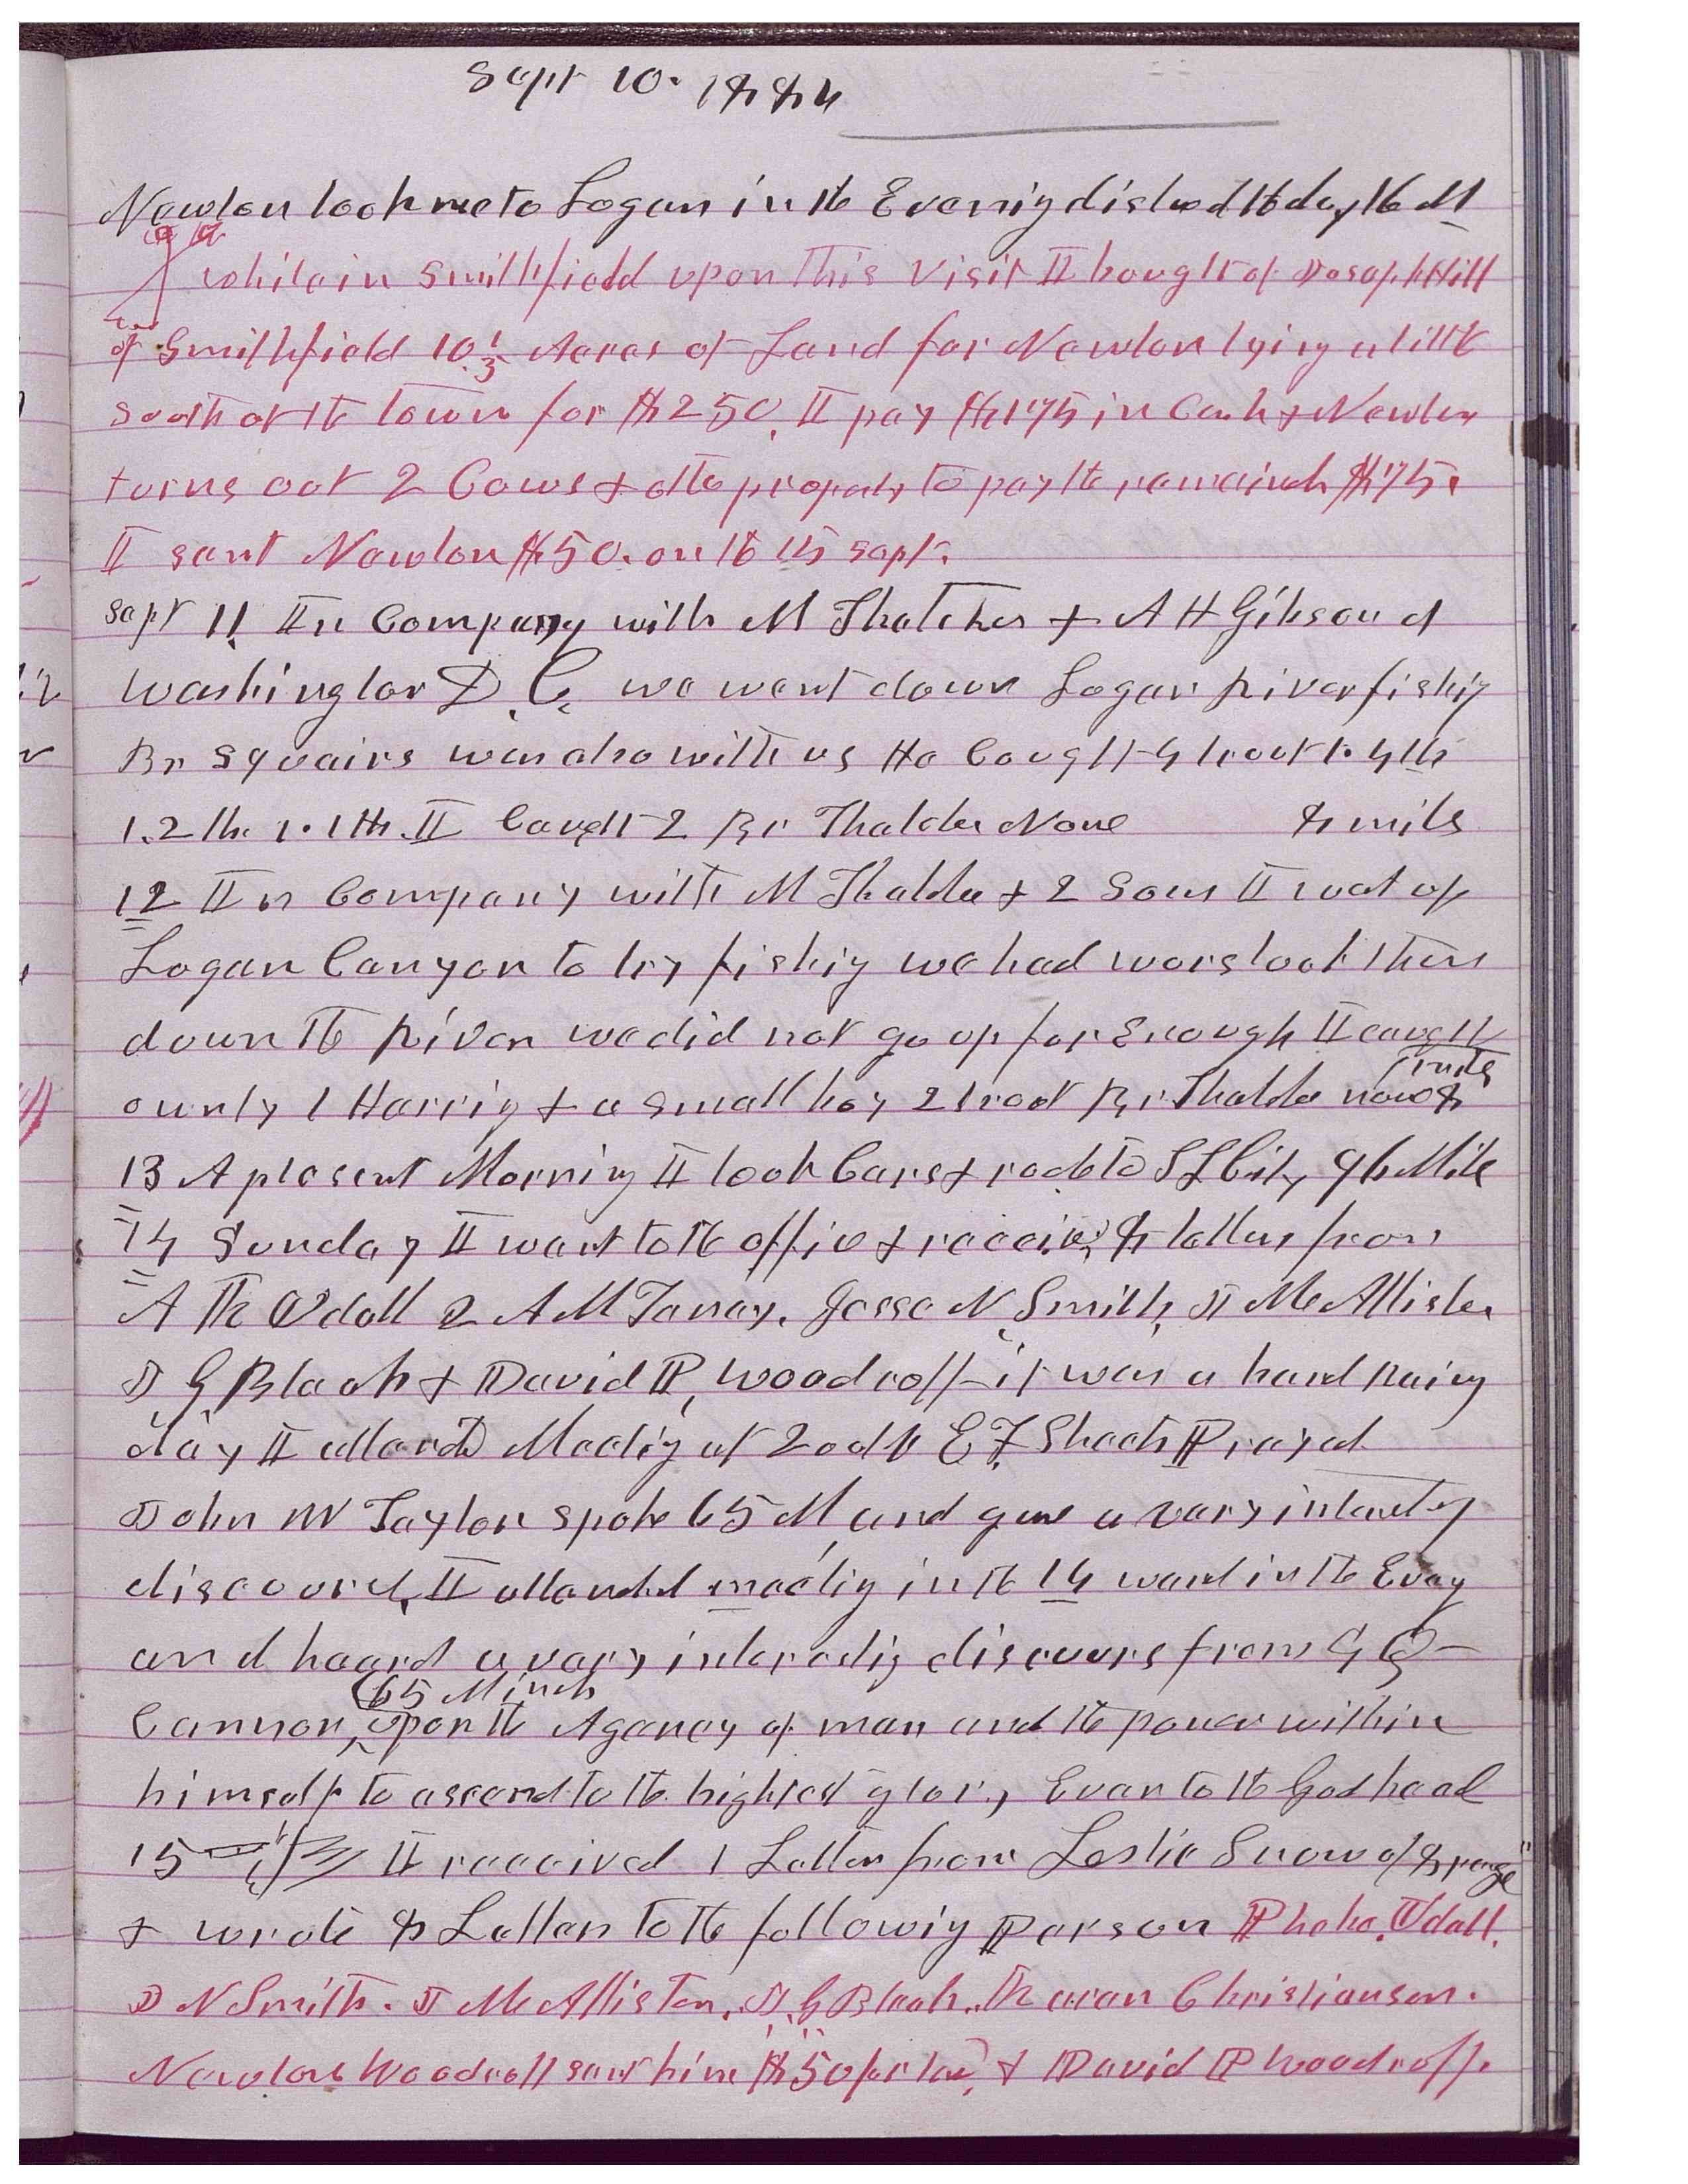 Sept 10. 1884
Newton took me to Logan in the Evening distand the day 16 M
While in Smithfield upon this visit I bought of Joseph Hill
of Smithfield 10 1/3 Acres of Land for Newton lying a little
South of the town for $250, I pay $175 in Cash & Newton
turns out 2 Cows & other property to pay the remaind $75.
I sent Newton $50. on the 15 Sept.
Sept 11 In Company with M Thatcher & A H Gibson of
Washington D. C. we went down Logan River fishing
Br Squairs was also with us He Caught 4 trout 1. 4 lb
1. 2 lb. 1. 1 lb. I Caught 2 Br Thatcher None 8 miles
12 In Company with M Thatcher & 2 Sons I went up
Logan Canyon to try fishing we had wors luck then
down the River we did not go up far Enough I caught
ounly 1 Herring & a small boy 2 trout Br Thatcher none 8
miles
13 A plesent Morning I took Cars & rode to S L City 96 Mile
14 Sunday I went to the office & receivd 8 letters from
Udall 2 A M Tanny, Jesse N. Smith, J McAllister
J G Bleak & David P, Woodruff it was a hard Rainy
day I attend Meeting at 2 oclk E F Sheets Prayed
John W Taylor spoke 65 M, and gave a very interesting
discourse, I attended meeting in the 14 ward in the Eveng
and heard a very interesting discours from G Q
Cannon, 65 Minuts upon the Agency of man and the power within
himself to ascend to the highest glory Even to the Godhead
15 I received 1 Letter from Leslie Snow of 8 page
& wrote 8 Letters to the following Person Phebe. Udall.
J N Smith. J McAllister. J, G Bleak. Christianson.
Newton Woodruff sent him $50 & David P Woodruff.